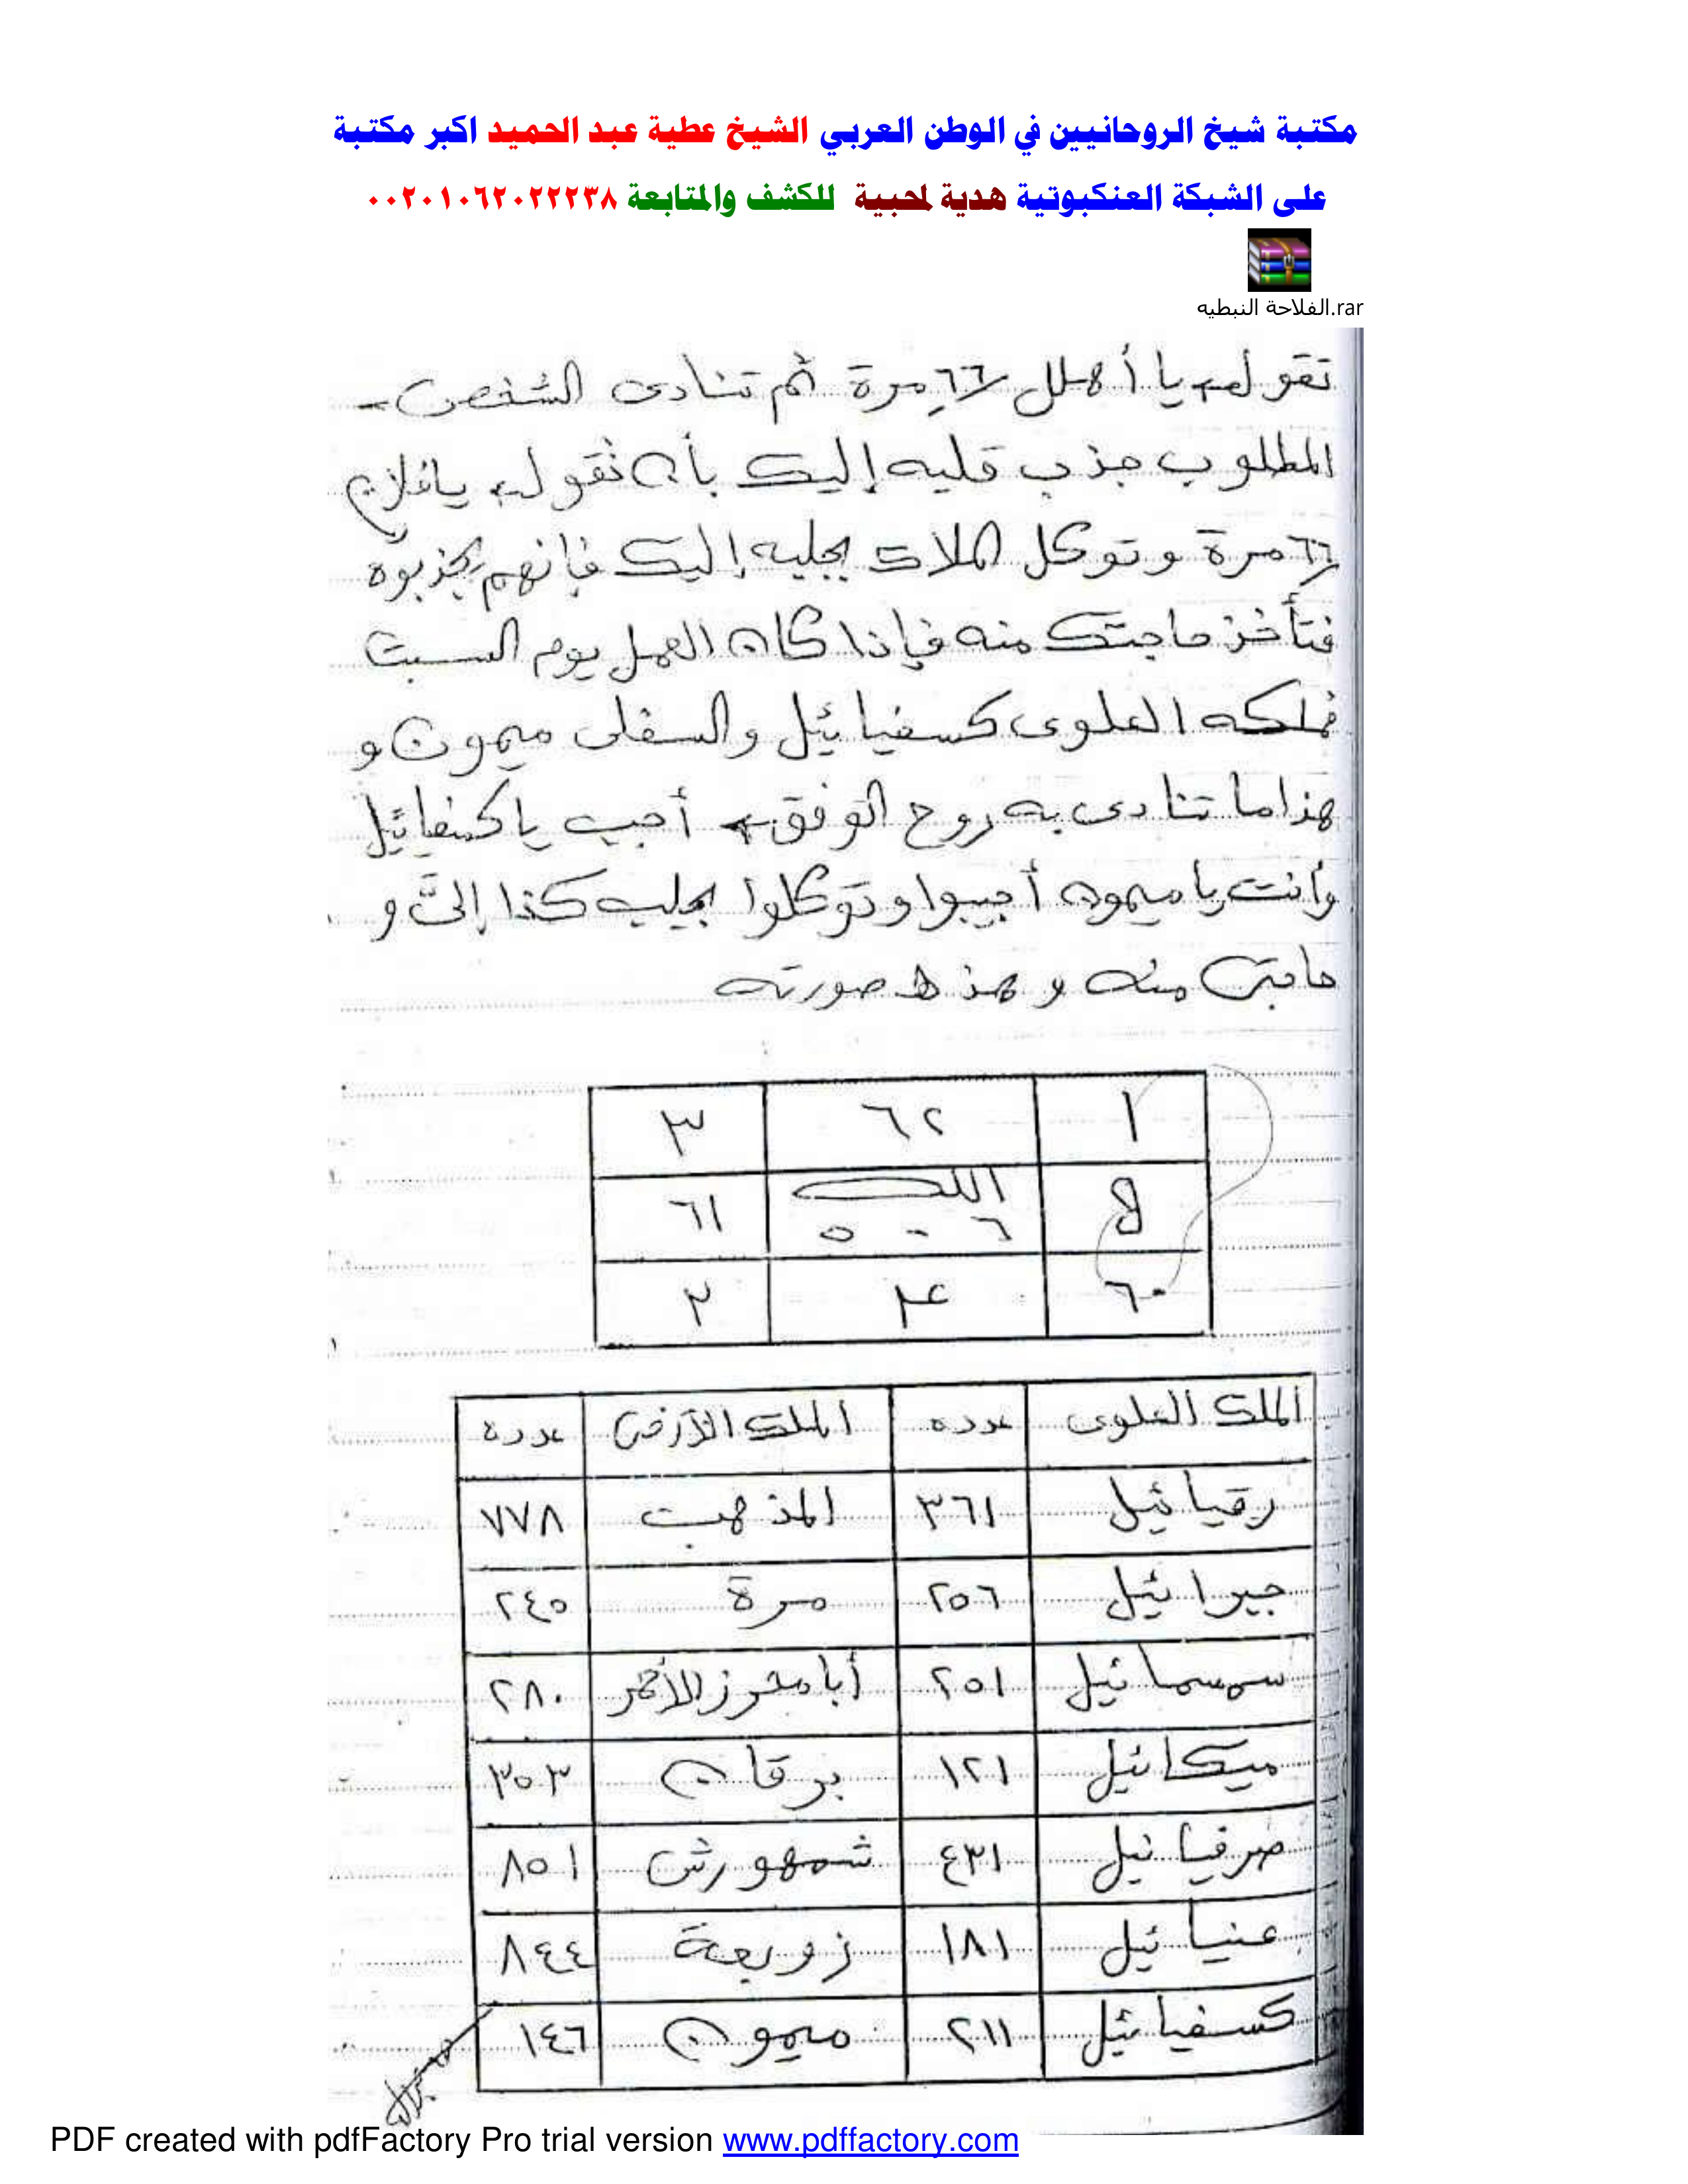 مكتبة شيخ الروحانيين في الوطن العربي الشيخ عطية عبد الحميد اكبر مكتبة
على الشبكة العنكبوتية هدية لمحبيه للكشف والمتابعة ٠٠٢٠١٠٦٢٠٢٢٢٣٨
الفلاحة النبطيه.rar
تقول يا أهلل ٦٦ مرة ثم تنادى الشخص
المطلوب جذب قلبه إليك بأن تقول يا فلان
٦٦ مرة وتوكل الملاك بجلبه إليك فإنهم يجذبوه
فتأخذ حاجتك منه فإذا كان العمل يوم السبت
فملكه العلوى كسفيائيل والسفلى ميمون و
هذا ما تنادى به روح الوفق أجب يا كسفيائيل
وأنت يا ميمون أجيبوا وتوكلوا بجلب كذا إلىَّ و
حاجتى منه وهذه صورته
١ ٦٢ ٣
٦١
٦٠ ٤ ٢
الملك العلوى عدده الملك الأرضى عدده
رقيائيل ٣٦١ المذهب ٧٧٨
جبرائيل ٢٥٦ مرة ٢٤٥
سمسمائيل ٢٥١ أبا محرز الأحمر ٢٨٠
ميكائيل ١٢١ برقان ٣٥٣
صرفيائيل ٤٣١ شمهورش ٨٥١
عنيائيل ١٨١ زوبعة ٨٤٤
كسفيائيل ٢١١ ميمون ١٤٦
PDF created with pdfFactory Pro trial version www.pdffactory.com